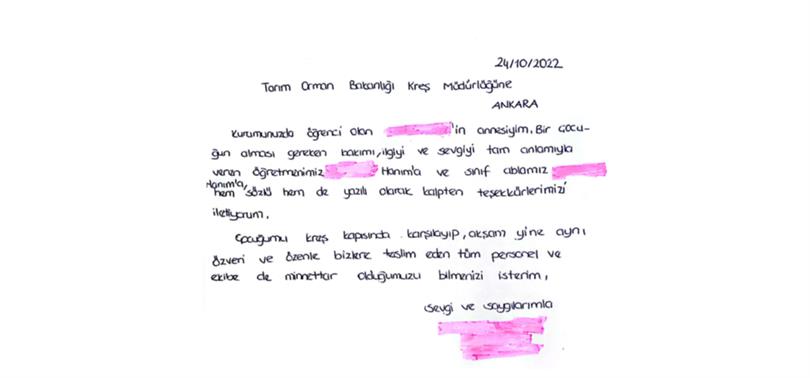 24/10/2022
Tarım Orman Bakanlığı Kreş Müdürlüğüne
ANKARA
Kurumunuzda öğrenci olan 'in annesiyim. Bir çocu-
ğun alması gereken bakımı, ilgiyi ve sevgiyi tam anlamıyla
veren öğretmenimiz Hanım'a ve sınıf ablamız
Hanım'a hem sözlü hem de yazılı olarak kalpten teşekkürlerimizi
iletiyorum.
Çocuğumu kreş kapısında karşılayıp, akşam yine aynı
özveri ve özenle bizlere teslim eden tüm personel ve
ekibe de minnettar olduğumuzu bilmenizi isterim.
Sevgi ve saygılarımla